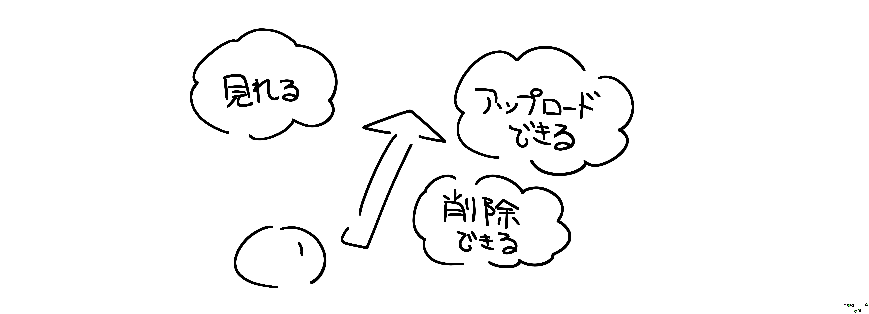 見れる
アップロード
できる
削除
できる